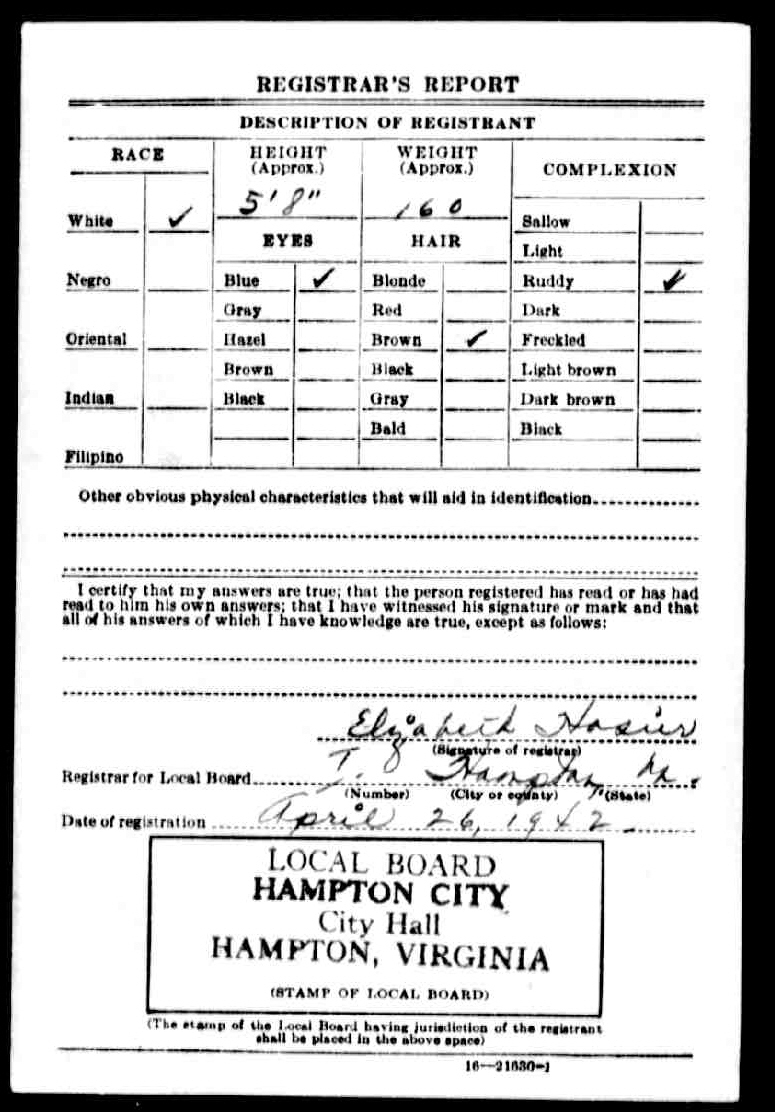 REGISTRAR'S REPORT
DESCRIPTION OF REGISTRANT
RACE HEIGHT (Approx.) WEIGHT (Approx.) COMPLEXION
5' 8" 160
White ✓ EYES HAIR Sallow
Light
Negro Blue ✓ Blonde Ruddy ✓
Gray Red Dark
Oriental Hazel Brown ✓ Freckled
Brown Black Light brown
Indian Black Gray Dark brown
Bald Black
Filipino
Other obvious physical characteristics that will aid in identification
I certify that my answers are true; that the person registered has read or has had
read to him his own answers; that I have witnessed his signature or mark and that
all of his answers of which I have knowledge are true, except as follows:
Elizabeth Hosier
(Signature of registrar)
Registrar for Local Board Hampton Va.
(Number) (City or county) (State)
Date of registration April 26, 1942
LOCAL BOARD
HAMPTON CITY
City Hall
HAMPTON, VIRGINIA
(STAMP OF LOCAL BOARD)
(The stamp of the Local Board having jurisdiction of the registrant
shall be placed in the above space)
16—21630-1